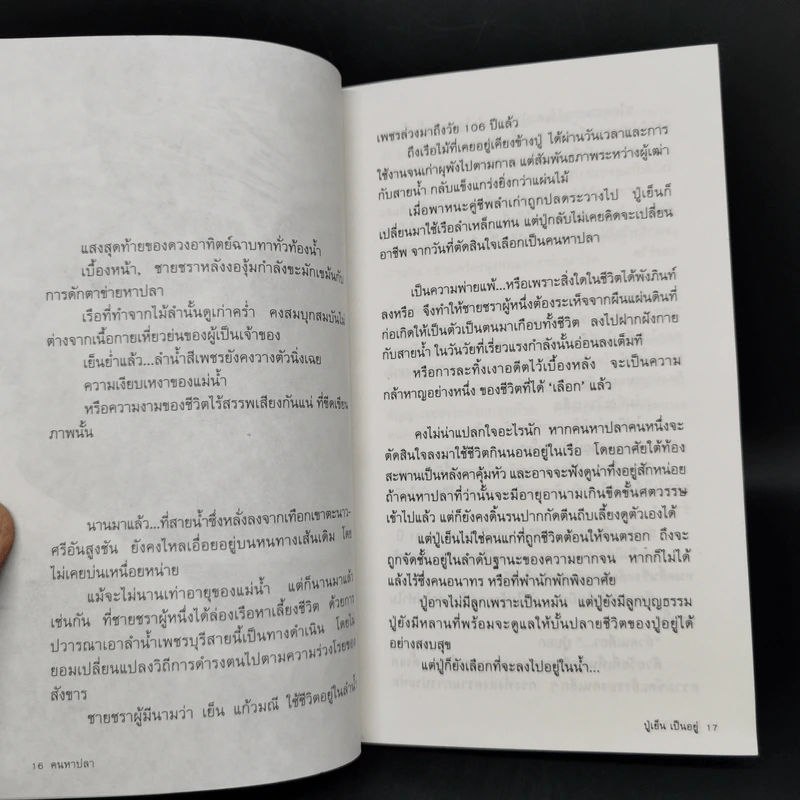 แสงสุดท้ายของดวงอาทิตย์ฉาบทาทั่วท้องน้ำ
เบื้องหน้า, ชายชราหลังงองุ้มกำลังขะมักเขม้นกับ
การดักตาข่ายหาปลา
เรือที่ทำจากไม้ลำนั้นดูเก่าคร่ำ คงสมบุกสมบันไม่
ต่างจากเนื้อกายเหี่ยวย่นของผู้เป็นเจ้าของ
เย็นย่ำแล้ว...ลำน้ำสีเพชรยังคงวางตัวนิ่งเฉย
ความเงียบเหงาของแม่น้ำ
หรือความงามของชีวิตไร้สรรพเสียงกันแน่ ที่ขีดเขียน
ภาพนั้น
นานมาแล้ว...ที่สายน้ำซึ่งหลั่งลงจากเทือกเขาตะนาว-
ศรีอันสูงชัน ยังคงไหลเอื่อยอยู่บนหนทางเส้นเดิม โดย
ไม่เคยบ่นเหนื่อยหน่าย
แม้จะไม่นานเท่าอายุของแม่น้ำ แต่ก็นานมาแล้ว
เช่นกัน ที่ชายชราผู้หนึ่งได้ล่องเรือหาเลี้ยงชีวิต ด้วยการ
ปวารณาเอาลำน้ำเพชรบุรีสายนี้เป็นทางดำเนิน โดยไม่
ยอมเปลี่ยนแปลงวิถีการดำรงตนไปตามความร่วงโรยของ
สังขาร
ชายชราผู้มีนามว่า เย็น แก้วมณี ใช้ชีวิตอยู่ในลำน้ำ
16 คนหาปลา
เพชรล่วงมาถึงวัย 106 ปีแล้ว
ถึงเรือไม้ที่เคยอยู่เคียงข้างปู่ ได้ผ่านวันเวลาและการ
ใช้งานจนเก่าผุพังไปตามกาล แต่สัมพันธภาพระหว่างผู้เฒ่า
กับสายน้ำ กลับแข็งแกร่งยิ่งกว่าแผ่นไม้
เมื่อพาหนะคู่ชีพลำเก่าถูกปลดระวางไป ปู่เย็นก็
เปลี่ยนมาใช้เรือลำเหล็กแทน แต่ปู่กลับไม่เคยคิดจะเปลี่ยน
อาชีพ จากวันที่ตัดสินใจเลือกเป็นคนหาปลา
เป็นความพ่ายแพ้...หรือเพราะสิ่งใดในชีวิตได้พังภินท์
ลงหรือ จึงทำให้ชายชราผู้หนึ่งต้องระเห็จจากผืนแผ่นดินที่
ก่อเกิดให้เป็นตัวเป็นตนมาเกือบทั้งชีวิต ลงไปฝากฝังกาย
กับสายน้ำ ในวันวัยที่เรี่ยวแรงกำลังนั้นอ่อนลงเต็มที
หรือการละทิ้งเงาอดีตไว้เบื้องหลัง จะเป็นความ
กล้าหาญอย่างหนึ่ง ของชีวิตที่ได้ 'เลือก' แล้ว
คงไม่น่าแปลกใจอะไรนัก หากคนหาปลาคนหนึ่งจะ
ตัดสินใจลงมาใช้ชีวิตกินนอนอยู่ในเรือ โดยอาศัยใต้ท้อง
สะพานเป็นหลังคาคุ้มหัว และอาจจะฟังดูน่าทึ่งอยู่สักหน่อย
ถ้าคนหาปลาที่ว่านั้นจะมีอายุอานามเกินขีดขั้นศตวรรษ
เข้าไปแล้ว แต่ก็ยังคงดิ้นรนปากกัดตีนถีบเลี้ยงดูตัวเองได้
แต่ปู่เย็นไม่ใช่คนแก่ที่ถูกชีวิตต้อนให้จนตรอก ถึงจะ
ถูกจัดชั้นอยู่ในลำดับฐานะของความยากจน หากก็ไม่ได้
แล้งไร้ซึ่งคนอนาทร หรือที่พำนักพักพิงอาศัย
ปู่อาจไม่มีลูกเพราะเป็นหมัน แต่ปู่ยังมีลูกบุญธรรม
ปู่ยังมีหลานที่พร้อมจะดูแลให้บั้นปลายชีวิตของปู่อยู่ได้
อย่างสงบสุข
แต่ปู่ก็ยังเลือกที่จะลงไปอยู่ในน้ำ...
ปู่เย็น เป็นอยู่ 17